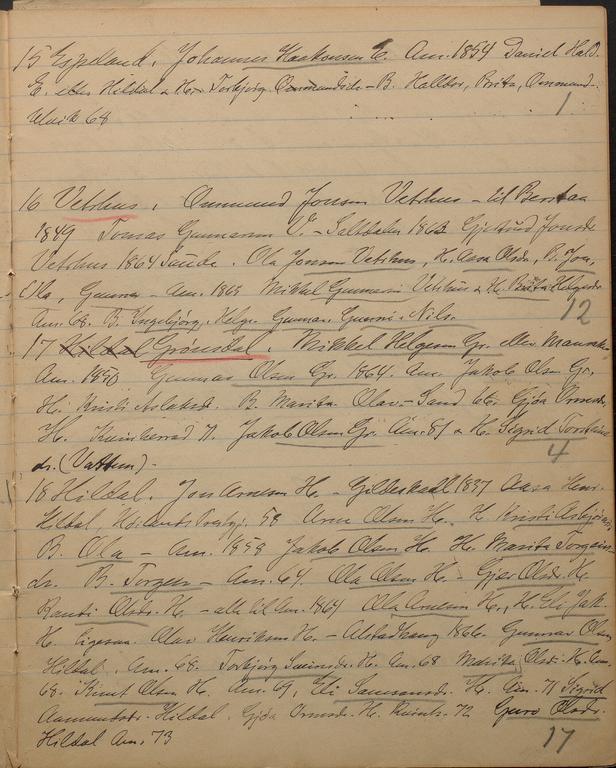 15 Espeland, Johannes Haakonsen E. Am. 1854 Daniel Hald.
E. eller Hildal & H. Torbjørg Ommundsdr. - B. Hallbor, Brita, Ommund -
Ulvik 68
1
16 Vetrhus, Ommund Jonsen Vetrhus - til
1849 Tomas Gunnarsen V. - Saltdalen 1863 Gjertrud Jonsdr
Vetrhus 1864 Saude. Ola Jonsen Vetrhus, H. Aasa Olsdr, B. Jon,
Ola, Gunnar - Am. 1865 Mikkel Gunnarsen Vetrhus & H. Brita Helgesdr
Am. 68. B. Ingebjørg, Helge, Gunnar, Guro & Nils.
12
17 Hildal, Grønsdal, Mikkel Helgesen Gr. eller
Am. 1850 Gunnar Olsen Gr. 1864. Am. Jakob Olsen Gr,
H. Kristi Aslaksd. B. Marita Olav - Sand 66. Gjøa Ormsdr.
H. Kvinherrad 71. Jakob Olsen Gr. Am. 81 & H. Sigrid Torstein
dr. (Vattnn) -
4
18 Hildal. Jon Arnesen H. - Gildeskaal 1837 Aasa Henr.
Hildal, 58 Arne Olsen H. H. Kristi Asbjørns
B. Ola - Am. 1858 Jakob Olsen H. H. Marita Torgeirs
dr. B. Torgeir - Am. 64. Ola Olsen H. - Gjøa Olsdr. H.
Ranti Olsdr. H. - alle til Am. 1864 Ola Arnesen H., H. Eli Jak.
H. ligesaa. Olav Henriksen H. - Alstadhaug 1866. Gunnar Olsen
Hildal, Am. 68. Torbjørg Samsonsdr. H. Am. 68 Marita Olsd. H. Am.
68. Knut Olsen H. Am. 69, Eli Samsonsdr. H. Am. 71 Sigrid
Aamundsdr. Hildal. Gjøa Ormsdr. H. Kvinh. 72 Guro Olsdr.
Hildal Am. 73
17